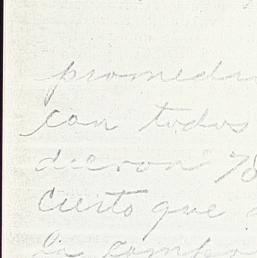 promedi
con todos
dieron 78
cierto que
la